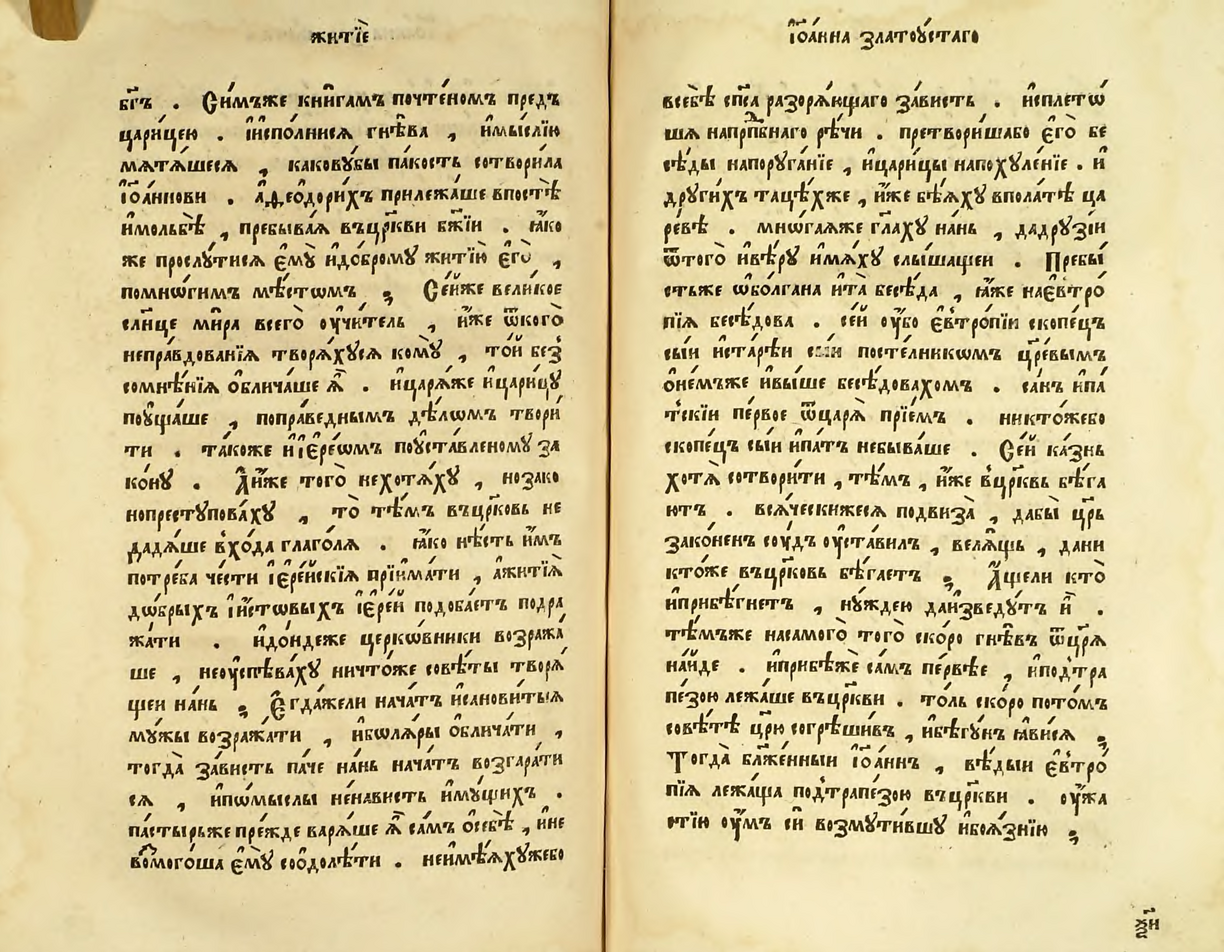 житїѐ
бг҃ъ . Си́мъже кни́гамъ почте́номъ пред̾
цари́цею . и҆и҆спо́лнисѧ гнѣ́ва , и҆мы́слїю
мѧтѧ́шесѧ , каковꙋ́бы па́кость сотвори́ла
і҆ѡа́ннови . а҆ѳео́дорихъ прилежа́ше впостѣ̀
и҆мольбѣ̀ , пребыва́ѧ въцр҃кви бж҃їи . ꙗ҆́ко
же прослꙋ́тисѧ є҆мꙋ̀ и҆до́бромꙋ житїю̀ є҆гѡ̀ ,
помнѡ́гимъ мѣ́стѡмъ ; Се́йже вели́кое
сл҃нце ми́ра всегѡ̀ ᲂу҆чи́тель , и҆́же ѿкогѡ̀
непра́вдованїѧ творѧ́хꙋсѧ комꙋ̀ , то́й без̾
сомнѣ́нїѧ ѡ҆блича́ше ѧ҆̀ . и҆царѧ́же и҆цари́цꙋ
поꙋща́ше , попра́веднымъ дѣлѡ́мъ твори́
ти . та́коже и҆і҆ере́ѡмъ поꙋста́вленомꙋ за
ко́нꙋ . А҆́и҆же тогѡ̀ нехотѧ́хꙋ , ноза́ко
нопрестꙋпова́хꙋ , то̀ тѣ́мъ въцр҃ковь не
дадѧ́ше в̾хо́да глаго́лѧ . ꙗ҆́ко нѣ́сть и҆̀мъ
потре́ба че́сти і҆ере́йскїѧ прїима́ти , а҆житїѧ̀
дѡ́брыхъ и҆и҆́стѡвыхъ і҆ере́й подоба́етъ подра
жа́ти . и҆до́ндеже церкѡ́вники возража̀
ше , неᲂу҆спѣва́хꙋ ничто́же совѣ́ты творѧ́
щеи на́нь ; Є҆гда́жели нача́тъ и҆санови́тыѧ
мꙋ́жы возража́ти , и҆болѧ́ры ѡ҆блича́ти ,
тогда̀ за́висть па́че на́нь нача́тъ возгара́ти
сѧ , и҆пѡ́мыслы не́нависть и҆мꙋ́щихъ .
па́стырьже пре́жде варѧ́ше ѧ҆̀ са́мъ ѡ҆себѣ̀ , и҆не
возмого́ша є҆мꙋ̀ соѡ҆долѣ́ти . неи҆мѣ́ѧхꙋжебо
і҆ѡа́нна златоꙋ́стагѡ
всебѣ̀ сп҃са разорѧ́ющаго за́висть . и҆сплетѡ́
шѧ напрпⷣбнаго рѣ́чи . претвори́шабо є҆го̀ бе
сѣ́ды напорꙋга́нїе , и҆цари́цы напохꙋле́нїе . и҆
дрꙋги́хъ таце́хже , и҆́же бѣ́ѧхꙋ вполатѣ̀ ца
ре́вѣ . мнѡ́гаѧже гл҃ахꙋ на́нь , дадрꙋзі́и
ѿтого̀ и҆вѣ́рꙋ и҆мꙋ́тъ слы́шащеи . Пребы́
стьже ѡ҆болга́на и҆та̀ бесѣ́да , ꙗ҆́же нає҆ѵтро́
пїѧ бесѣ́дова . се́й ᲂу҆́бо є҆ѵтро́пїи скопе́цъ
сы́и и҆старѣ́и сы́и посте́лникѡмъ цр҃е́вымъ
ѡ҆не́мъже и҆вы́ше бесѣ́довахомъ . са́нъ и҆па́
тскїи пе́рвое ѿцарѧ̀ прїе́мъ . никто́жебо
скопе́цъ сы́и и҆па́тъ небыва́ше . Се́й ка́знь
хотѧ̀ сотвори́ти , тѣ́мъ , и҆́же в̾цр҃ковь бѣ́га
ютъ . всѧ́ческижесѧ подви́за , дабы̀ цр҃ь
зако́ненъ сᲂу́дъ ᲂу҆ста́вилъ , велѧ́щь , дани
кто́же въцр҃ковь бѣ́гаетъ ; А҆́щели кто̀
и҆прибѣ́гнетъ , нꙋ́ждею даи҆зведꙋ́тъ и҆̀ .
тѣ́мъже насамого̀ того̀ ско́ро гнѣ́въ ѿцр҃ѧ
на́йде . и҆прибѣжѐ са́мъ пе́рвѣе , и҆под̾тра
пе́зою лежа́ше въцр҃кви . то́ль ско́ро пото́мъ
совѣ́тѣ цр҃ю согрѣши́въ , и҆бѣгꙋ́нъ ꙗ҆ви́сѧ ;
Тогда̀ бл҃же́нныи і҆ѡа́ннъ , вѣ́дыи є҆ѵтро́
пїѧ лежа́ща под̾трапе́зою въцр҃кви . ᲂу҆жа
стїю ᲂу҆́мъ си̑ возмꙋти́вшꙋ и҆боѧ́знїю ;
х҃н